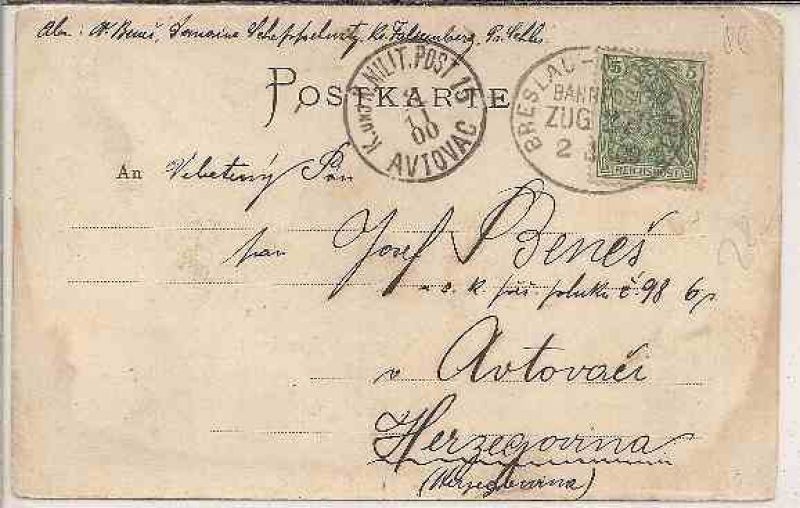 Abs: A. Beneš, Domaine Scheppelwitz, Kr. Falkenberg, Pr. Schles
POSTKARTE
K.und K. MILIT. POST 15
11
00
AVTOVAC
BRESLAU-
BAHNPOST
ZUG
2
5 5
REICHSPOST
An Velectěný Pan
pan Josef Beneš
c. k. pěš. pluku č. 98
v Avtovači
Herzegovina
(Hercegovina)